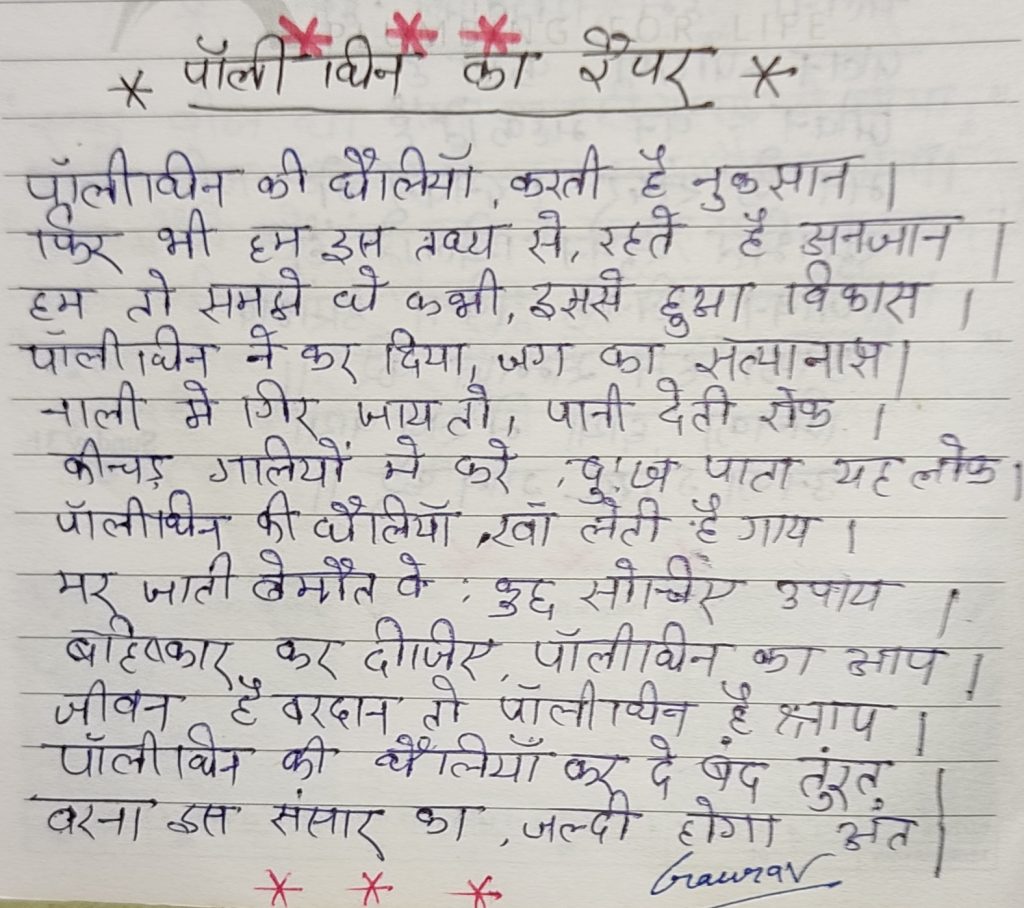 * पॉलीथिन का रैपर *
पॉलीथिन की थैलियाँ, करती है नुकसान |
फिर भी हम इस तथ्य से, रहते है अनजान |
हम तो समझे थे कभी, इससे हुआ विकास |
पॉलीथिन ने कर दिया, जग का सत्यानाश |
नाली मे गिर जाय तो, पानी देती रोक |
कीचड़ गालियों मे करे, दुःख पाता यह लोक |
पॉलीथिन की थैलियाँ, खाँ लेती है गाय |
मर जाती बेमौत वे : कुछ सोचिए उपाय |
बहिष्कार कर दीजिए, पॉलीथिन का आप |
जीवन है वरदान तो पॉलीथिन है श्राप |
पॉलीथिन की थैलियाँ कर दे बंद तुंरत,
वरना इस संसार का, जल्दी होगा अंत |
Gaurav